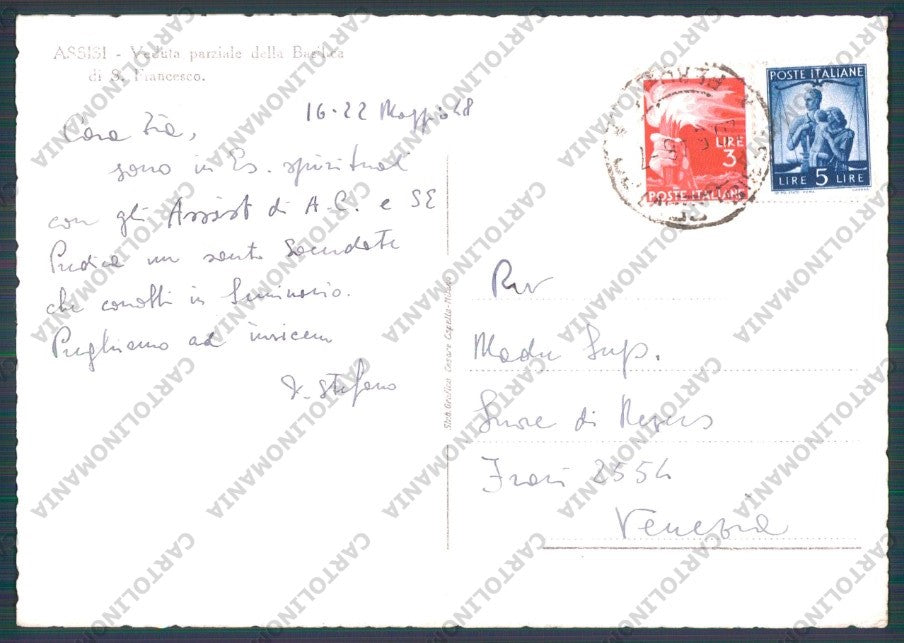 ASSISI - Veduta parziale della Basilica
di S. Francesco.
16-22 Maggio 48
Cara Zia,
sono in Es. spirituali
con gli Assist di A.C. e SE
Predica un santo Sacerdote
che conobbi in Seminario.
Preghiamo ad invicem
d. Stefano
Stab. Grafico Cesare Capello - Milano
POSTE ITALIANE
LIRE 3
POSTE ITALIANE
LIRE 5 LIRE
Rev
Madre Sup.
Suore di Nevers
Frari 2554
Venezia
CARTOLINOMANIA